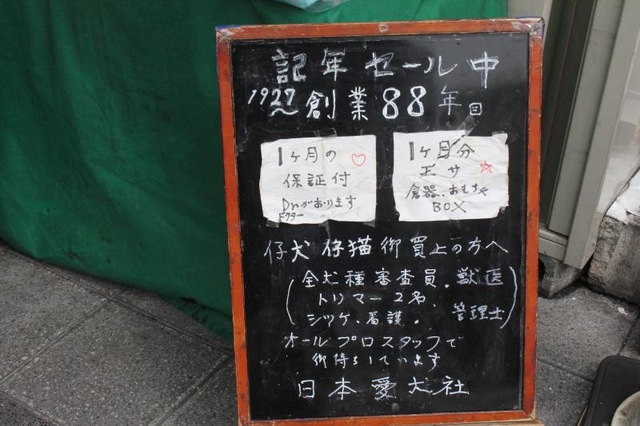 記年セール中
1927〜創業88年目
1ヶ月の♡
保証付
Drがおります
ドクター
1ヶ月分
エサ☆
食器、おもちゃ
BOX
仔犬仔猫御買上の方へ
(全犬種審査員、獣医
トリマー2名
シツケ、看護、管理士)
オールプロスタッフで
御待ちしています
日本愛犬社